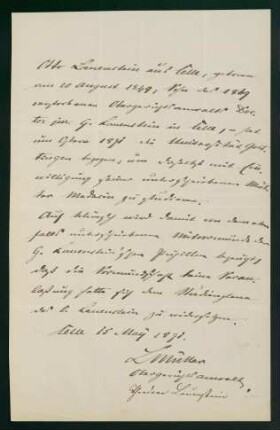 Otto Lauenstein aus Celle, geboren
am 20 August 1849, Sohn des 1869
verstorbenen Obergerichtsanwalts Doc-
tor jur. G. Lauenstein in Celle, hat
um Ostern 1871 die Universität Göt-
tingen bezogen, um daselbst mit Ein-
willigung seiner unterschriebenen Mut-
ter Medicin zu studieren.
Auf Wunsch wird damit von dem eben-
falls unterschriebenen Mitvormunde der
G. Lauensteinschen Pupillen bezeugt
daß die Vormundschaft keine Veran-
laßung hatte sich dem Studienplane
des O. Lauenstein zu widersetzen.
Celle 15 May 1871.
L Müller
Obergerichtsanwalt
Lauenstein